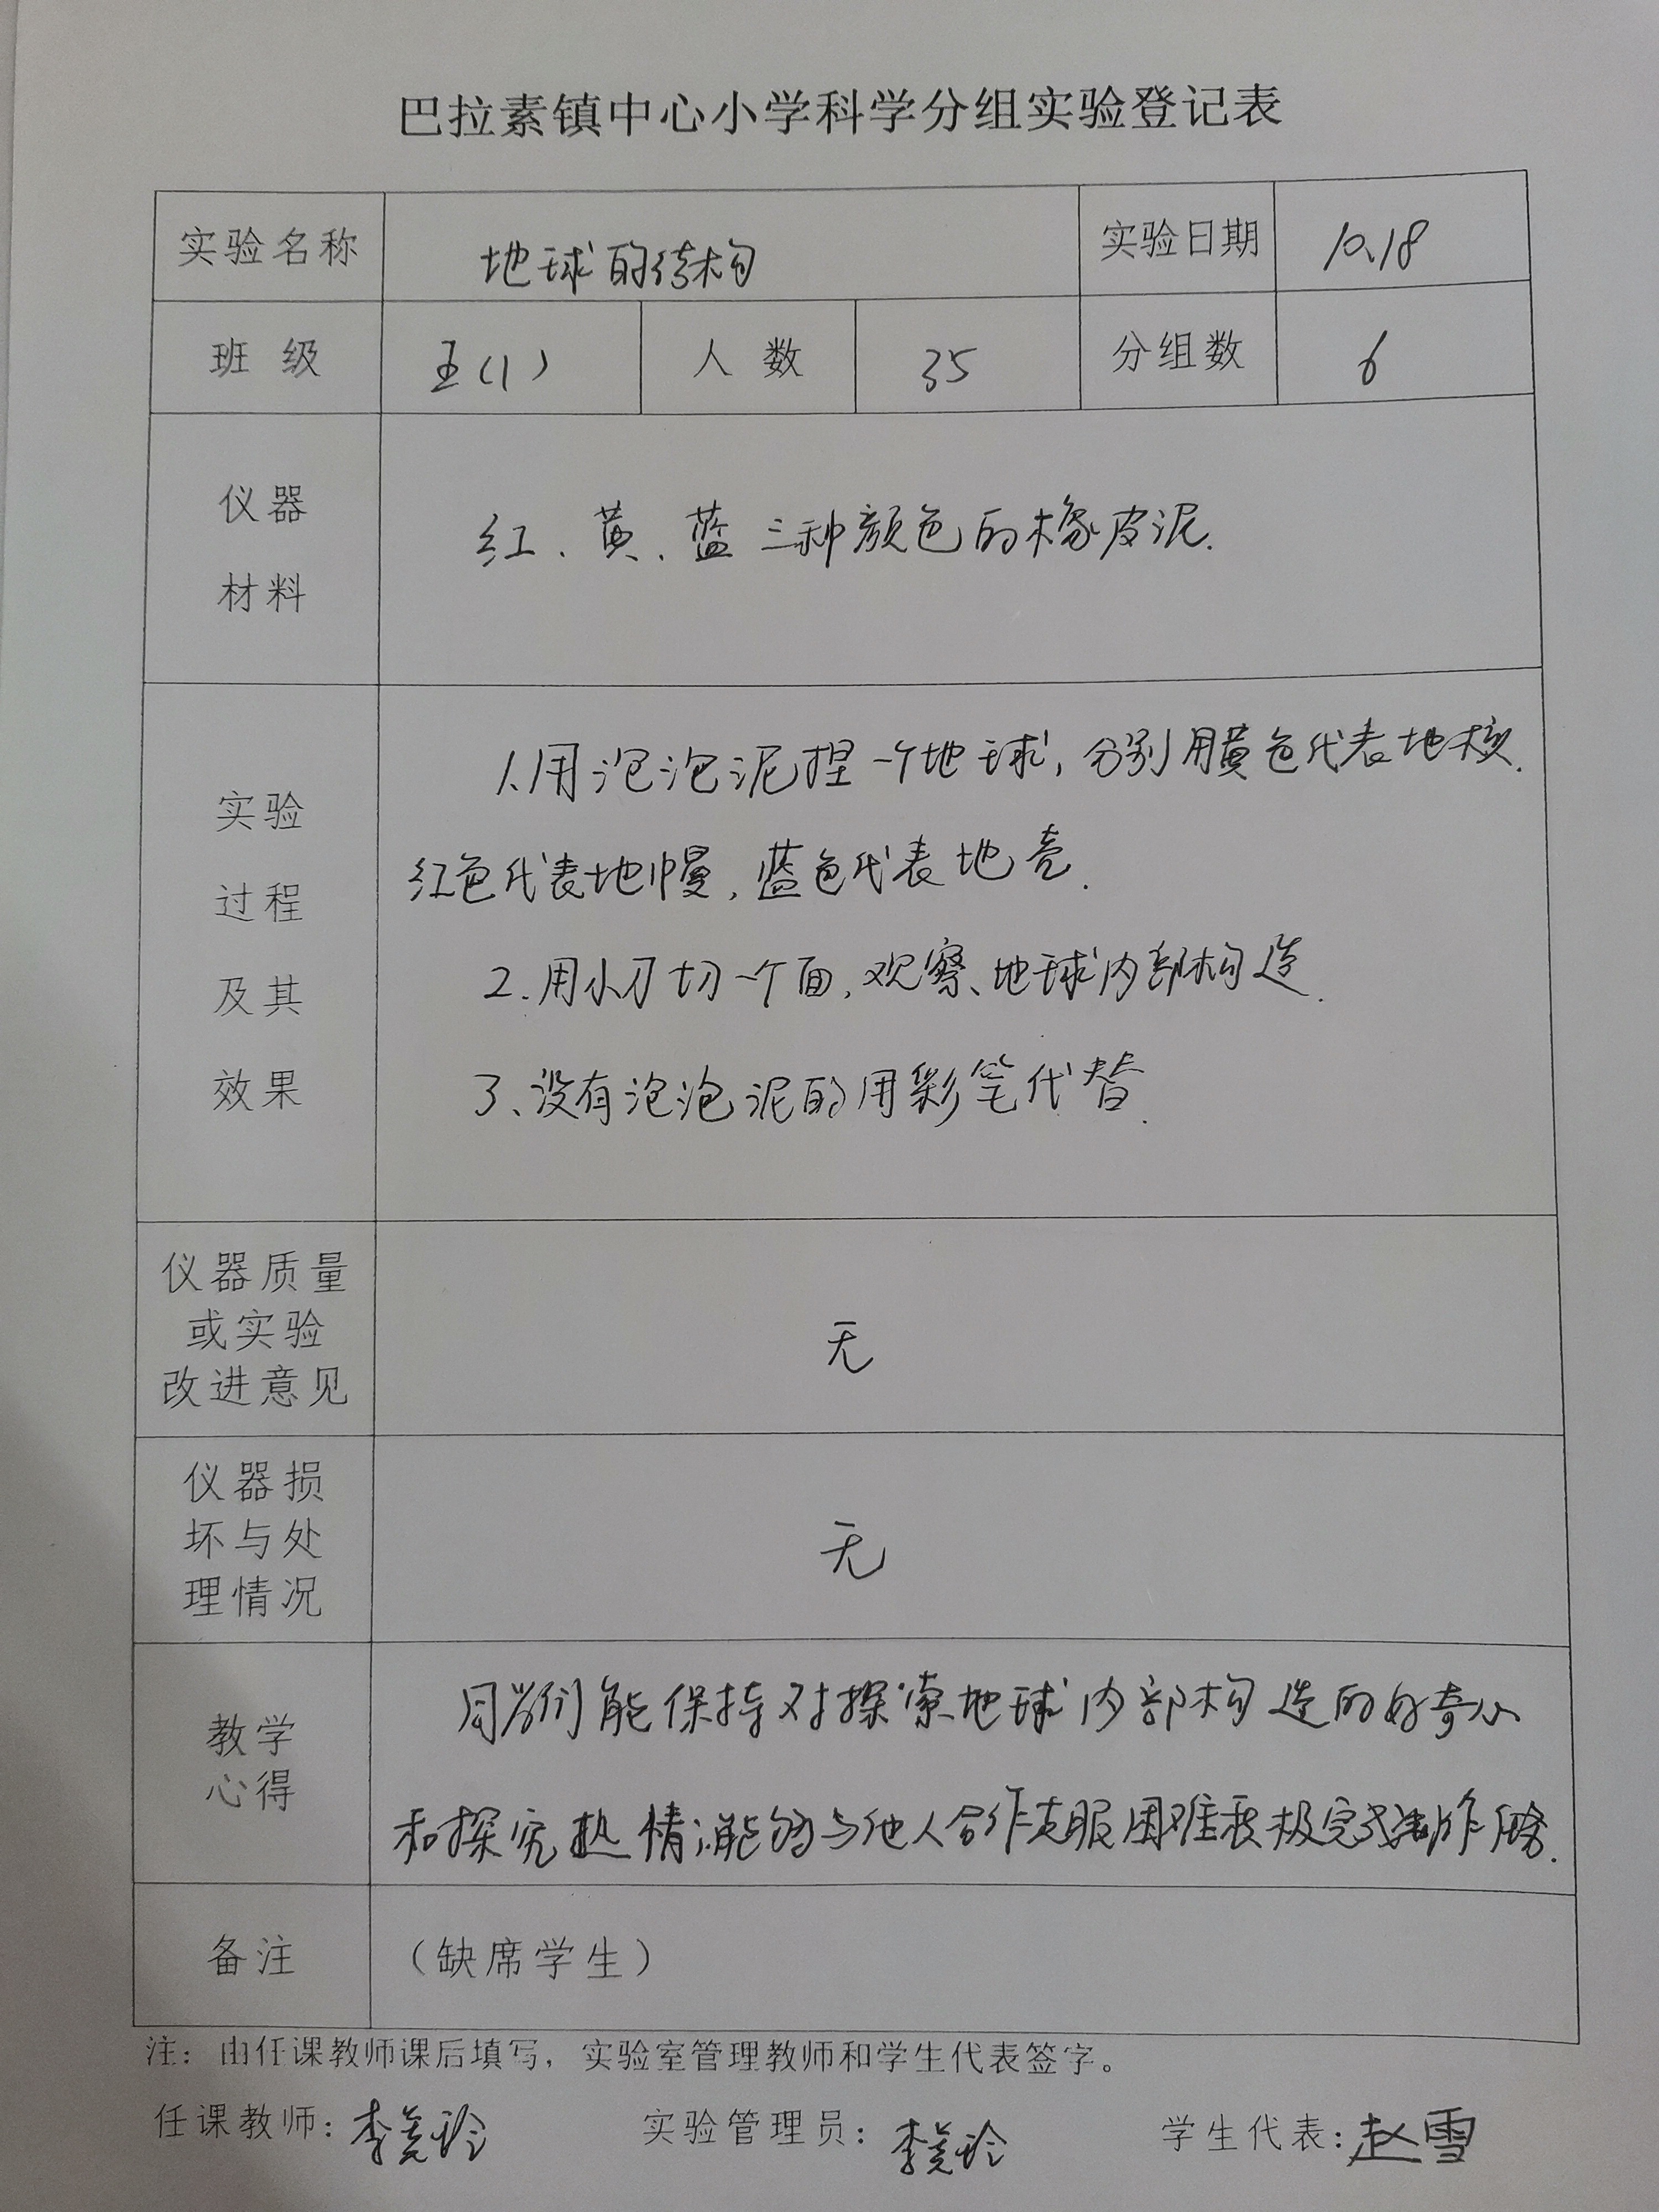 巴拉素镇中心小学科学分组实验登记表
实验名称 地球的结构 实验日期 10.18
班 级 五(1) 人 数 35 分组数 6
仪器
材料
红、黄、蓝三种颜色的橡皮泥.
实验
过程
及其
效果
1.用泡泡泥捏一个地球,分别用黄色代表地核.
红色代表地幔,蓝色代表地壳.
2.用小刀切一个面,观察、地球内部构造.
3、没有泡泡泥的用彩笔代替.
仪器质量
或实验
改进意见
无
仪器损
坏与处
理情况
无
教学
心得
同学们能保持对探索地球内部构造的好奇心
和探究热情;能够与他人合作克服困难积极完成制作
备注 （缺席学生）
注：由任课教师课后填写，实验室管理教师和学生代表签字。
任课教师：李美玲 实验管理员：李美玲 学生代表：赵雪